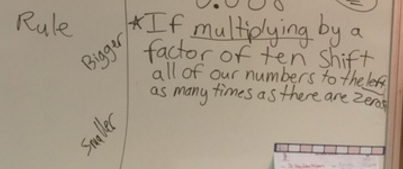 Rule
Bigger
Smaller
*If multiplying by a
factor of ten shift
all of our numbers to the left
as many times as there are zeros